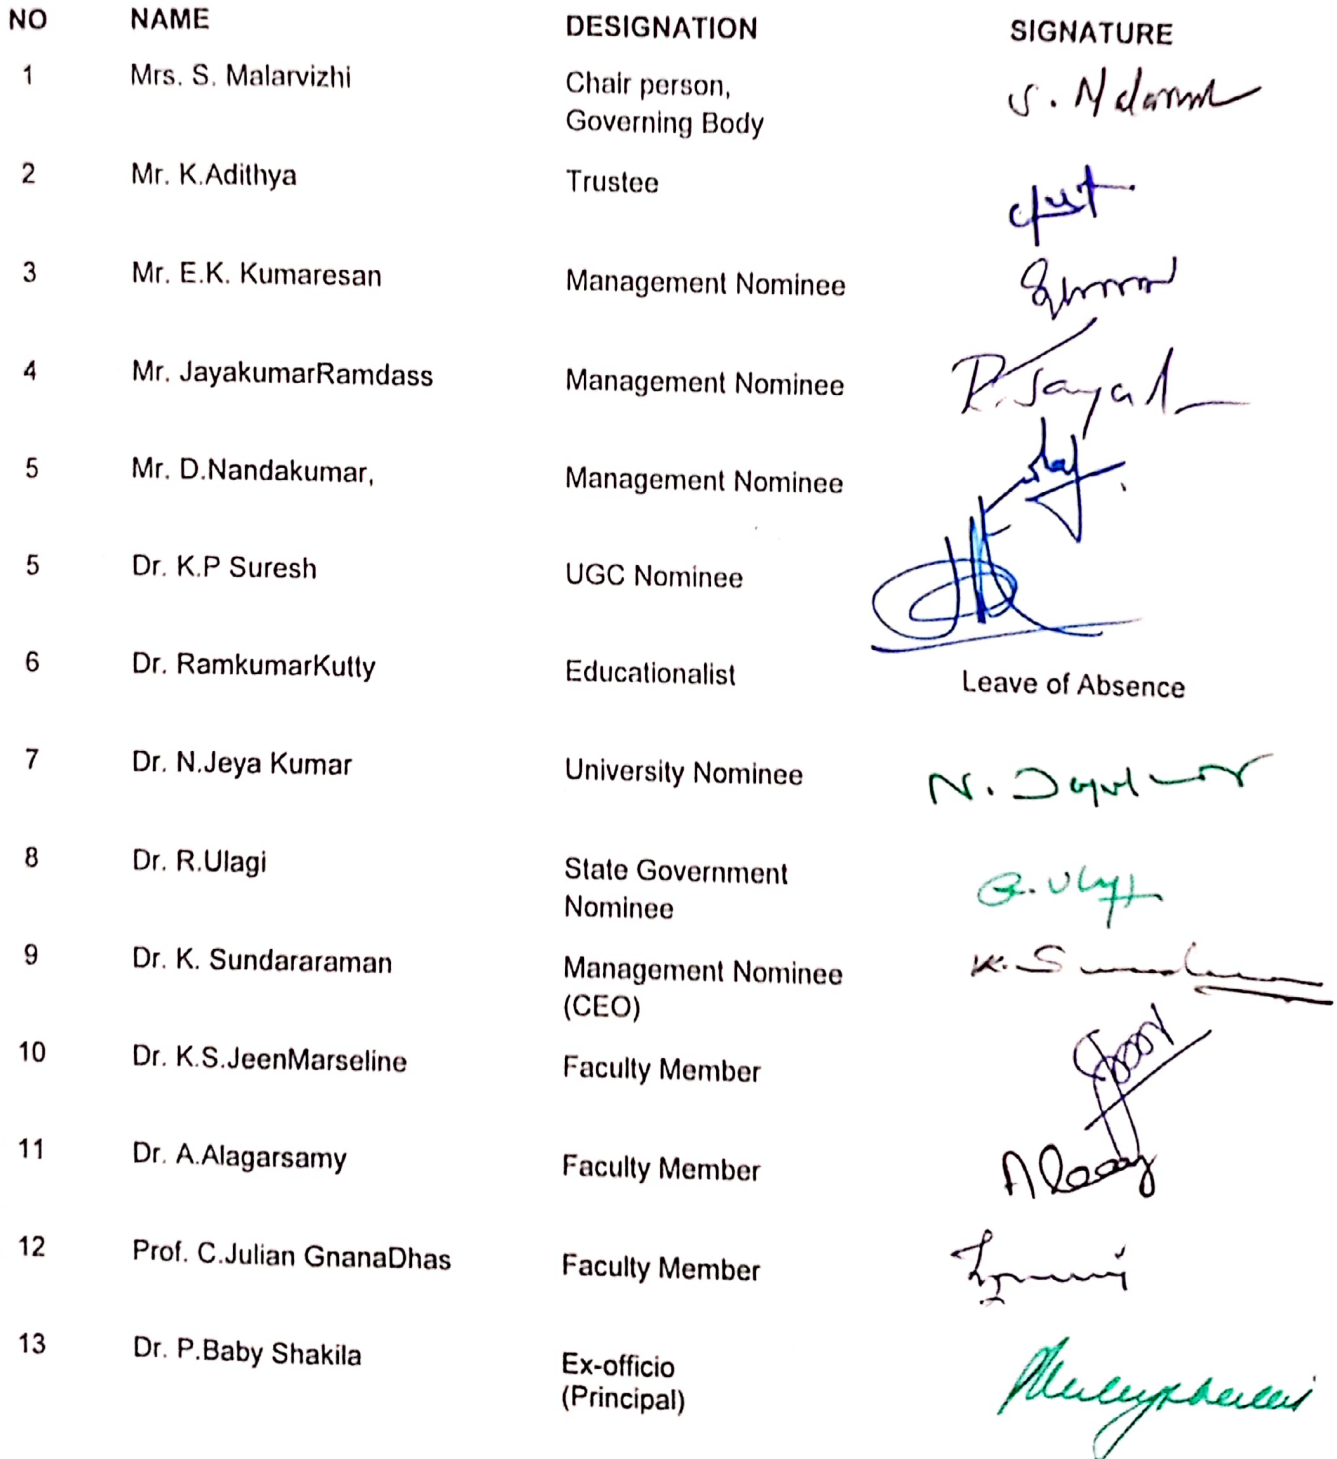 NO NAME DESIGNATION SIGNATURE
1 Mrs. S. Malarvizhi Chair person,
Governing Body
2 Mr. K.Adithya Trustee
3 Mr. E.K. Kumaresan Management Nominee
4 Mr. JayakumarRamdass Management Nominee
5 Mr. D.Nandakumar, Management Nominee
5 Dr. K.P Suresh UGC Nominee
6 Dr. RamkumarKutty Educationalist Leave of Absence
7 Dr. N.Jeya Kumar University Nominee
8 Dr. R.Ulagi State Government
Nominee
9 Dr. K. Sundararaman Management Nominee
(CEO)
10 Dr. K.S.JeenMarseline Faculty Member
11 Dr. A.Alagarsamy Faculty Member
12 Prof. C.Julian GnanaDhas Faculty Member
13 Dr. P.Baby Shakila Ex-officio
(Principal)